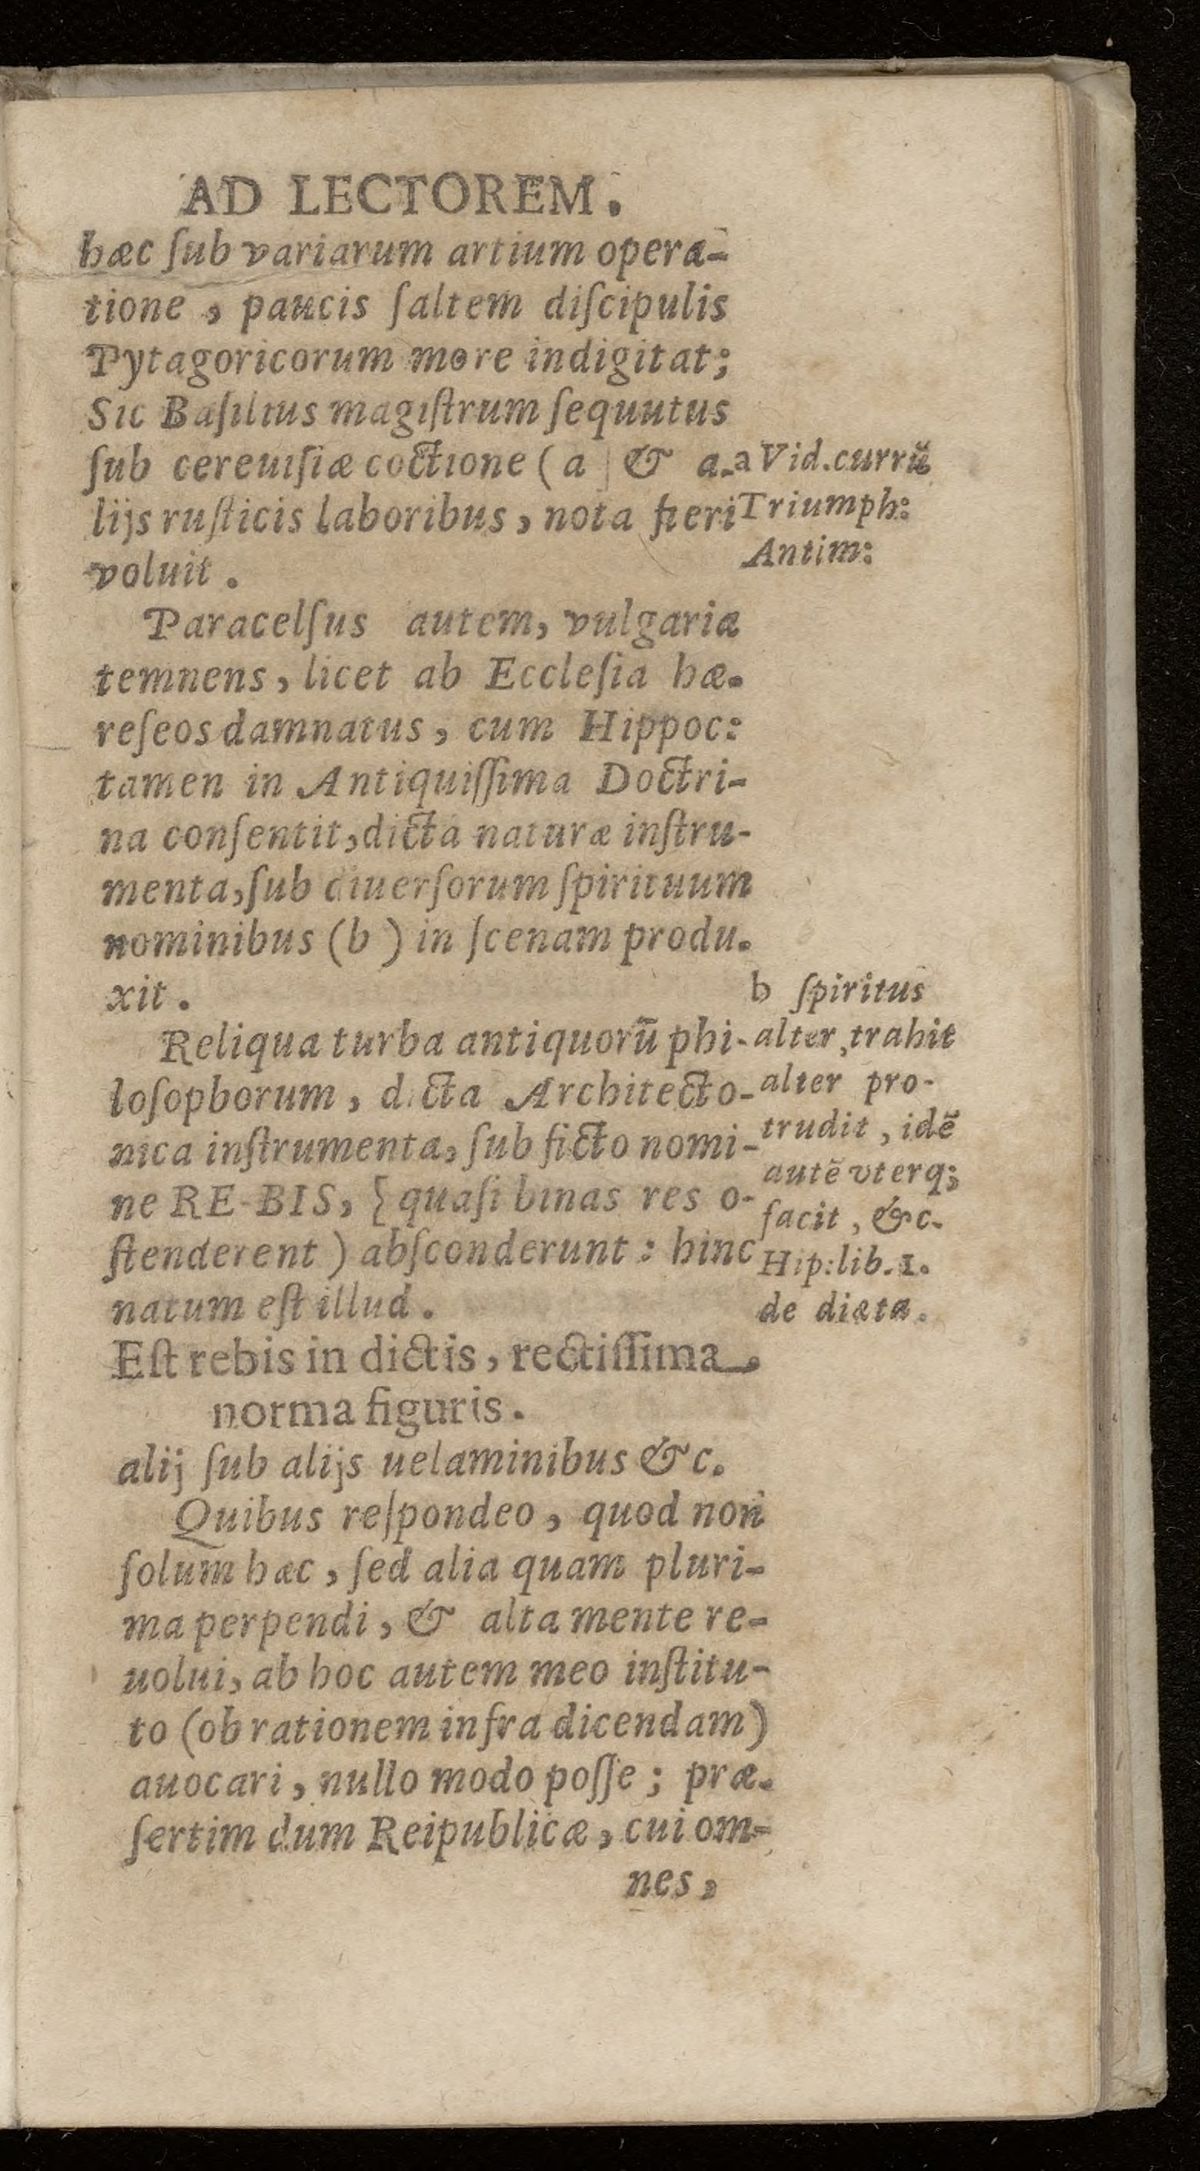 AD LECTOREM.
hæc ſub variarum artium opera-
tione, paucis ſaltem diſcipulis
Pytagoricorum more indigitat;
Sic Baſilius magiſtrum ſequutus
ſub cereuiſiæ coctione (a) & a-
lijs ruſticis laboribus, nota fieri
voluit.
a Vid.currũ
Triumph:
Antim:
Paracelſus autem, vulgaria
temnens, licet ab Eccleſia hæ-
reſeos damnatus, cum Hippoc:
tamen in Antiquiſſima Doctri-
na conſentit, dicta naturæ inſtru-
menta, ſub diuerſorum ſpirituum
nominibus (b) in ſcenam produ-
xit.
Reliqua turba antiquorũ phi-
loſophorum, dicta Architecto-
nica inſtrumenta, ſub ficto nomi-
ne RE-BIS, (quaſi binas res o-
ſtenderent) abſconderunt: hinc
natum eſt illud.
b ſpiritus
alter, trahit
alter pro-
trudit, idẽ
autẽ vterq;
facit, &c.
Hip:lib.1.
de diæta.
Eſt rebis in dictis, rectiſſima
norma figuris.
alij ſub alijs uelaminibus &c.
Quibus reſpondeo, quod non
ſolum hæc, ſed alia quam pluri-
ma perpendi, & alta mente re-
uolui, ab hoc autem meo inſtitu-
to (ob rationem infra dicendam)
auocari, nullo modo poſſe; præ-
ſertim dum Reipublicæ, cui om-
nes,